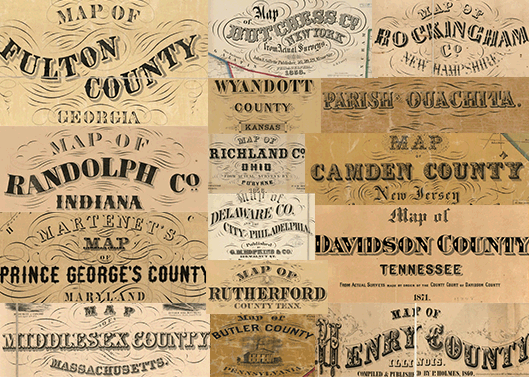 MAP OF
FULTON
COUNTY
GEORGIA
MAP OF
RANDOLPH CO
INDIANA
MARTENET'S
MAP
OF
PRINCE GEORGE'S COUNTY
MARYLAND
MAP
OF
MIDDLESEX COUNTY
MASSACHUSETTS.
Map
of
DUTCHESS CO.
NEW YORK
from Actual Surveys
WYANDOTT
COUNTY
KANSAS
MAP OF
RICHLAND CO.
OHIO
FROM ACTUAL SURVEYS BY
P. O'BYRNE
1856
MAP OF
DELAWARE CO.
CITY OF PHILADELPHIA
Published
G.M. HOPKINS & CO.
MAP OF
RUTHERFORD
COUNTY TENN.
Map of
BUTLER COUNTY
PENNSYLVANIA
MAP OF
ROCKINGHAM
CO
NEW HAMPSHIRE.
PARISH OF OUACHITA.
MAP
OF
CAMDEN COUNTY
New Jersey
Map of
DAVIDSON COUNTY
TENNESSEE
FROM ACTUAL SURVEYS MADE BY ORDER OF THE COUNTY COURT OF DAVIDSON COUNTY
1871.
MAP OF
HENRY COUNTY
ILLINOIS.
COMPILED & PUBLISHED BY P. HOLMES. 1860.